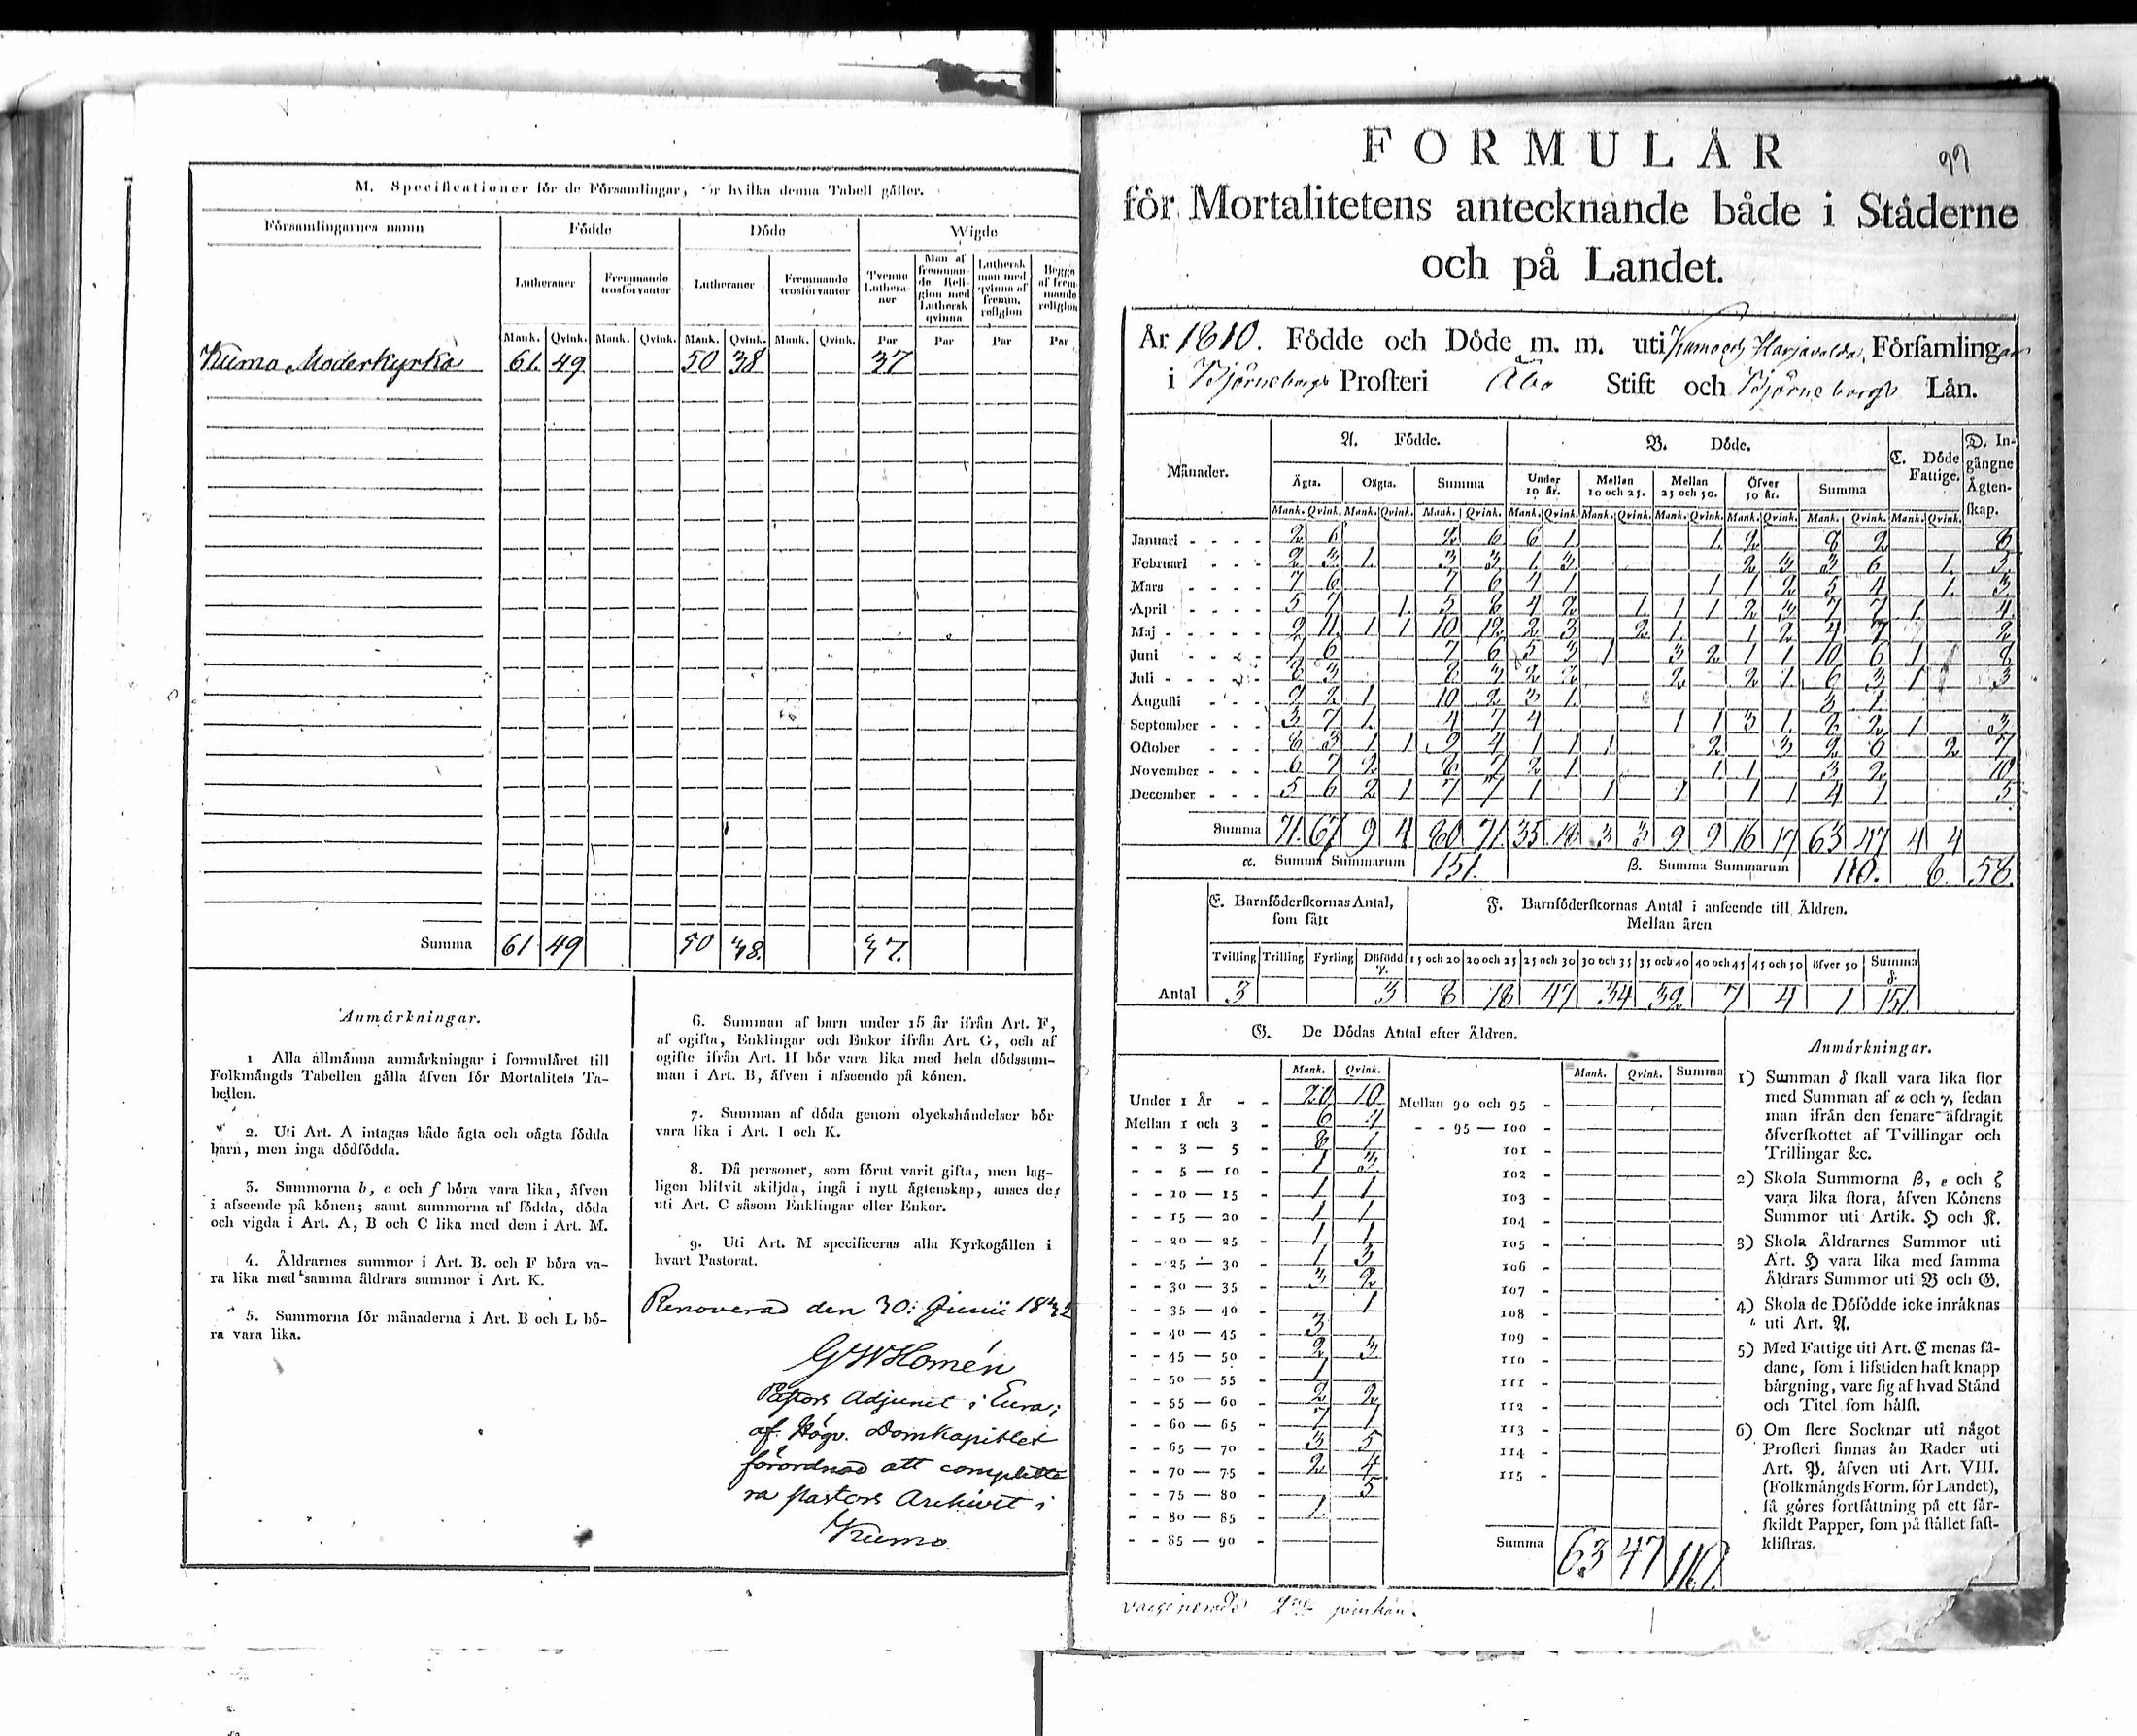 M. Specificationer för de Församlingar, för hvilka denna Tabell gäller.
Församlingarnes namn Födde Döde Wigde
Lutheraner Fremmande trosförvanter Lutheraner Fremmande trosförvanter Tvenne Lutheraner Man af fremmande Religion med Luthersk qvinna Luthersk man med qvinna af fremm. religion Begge af fremmande religion
Mank. Qvink. Mank. Qvink. Mank. Qvink. Mank. Qvink. Par Par Par Par
Kumo Moderkyrka 61. 49 50 38 37
Summa 61 49 50 38. 37.
Anmärkningar.
1 Alla allmänna anmärkningar i formuläret till
Folkmängds Tabellen gälla äfven för Mortalitets Ta-
bellen.
2. Uti Art. A intagas både ägta och oägta födda
barn, men inga dödfödda.
3. Summorna b, e och f böra vara lika, äfven
i afseende på könen; samt summorna af födda, döda
och vigda i Art. A, B och C lika med dem i Art. M.
4. Äldrarnes summor i Art. B. och F böra va-
ra lika med samma äldrars summor i Art. K.
5. Summorna för månaderna i Art. B och L bö-
ra vara lika.
6. Summan af barn under 15 år ifrån Art. F,
af ogifta, Enklingar och Enkor ifrån Art. G, och af
ogifte ifrån Art. H bör vara lika med hela dödssum-
man i Art. B, äfven i afseende på könen.
7. Summan af döda genom olyckshändelser bör
vara lika i Art. I och K.
8. Då personer, som förut varit gifta, men lag-
ligen blifvit skiljda, ingå i nytt ägtenskap, anses de
uti Art. C såsom Enklingar eller Enkor.
9. Uti Art. M specificeras alla Kyrkogällen i
hvart Pastorat.
Renoverad den 30: Junii 1832
G W Homén
Pastors Adjunct i Eura;
af Högv. Domkapitlet
förordnad att complette
ra Pastors Archivet i
Kumo.
99
FORMULÄR
för Mortalitetens antecknande både i Städerne
och på Landet.
År 1810. Födde och Döde m. m. uti Kumo och Harjavalda Församlingar
i Björneborgs Prosteri Åbo Stift och Björneborgs Län.
Månader. A. Födde. B. Döde. C. Döde Fattige. D. Ingångne Ägtenskap.
Ägta. Oägta. Summa Under 10 år. Mellan 10 och 25. Mellan 25 och 50. Öfver 50 år. Summa
Mank. Qvink. Mank. Qvink. Mank. Qvink. Mank. Qvink. Mank. Qvink. Mank. Qvink. Mank. Qvink. Mank. Qvink. Mank. Qvink.
Januari 2 6 2 6 6 1 1 2 8 2 8
Februari 2 3 1 3 3 1 3 2 3 3 6 1 3
Mars 7 6 7 6 4 1 1 1 2 5 4 1 3
April 5 7 1 5 8 4 2 1 1 1 2 3 7 7 1 4
Maj 9 11 1 1 10 12 2 3 2 1 1 2 4 7 2
Juni 7 6 7 6 5 3 1 3 2 1 1 10 6 1 8
Juli 8 3 8 3 2 2 2 2 1 6 3 1 3
Augusti 9 2 1 10 2 3 1 3 1
September 3 7 1 4 7 4 1 1 3 1 8 2 1 3
October 8 3 1 1 9 4 1 1 1 2 3 2 6 2 7
November 6 7 2 8 7 2 1 1 1 3 2 10
December 5 6 2 1 7 7 1 1 1 1 1 4 1 5
Summa 71. 67 9 4 80 71. 35 18 3 3 9 9 16 17 63 47 4 4
α. Summa Summarum 151. β. Summa Summarum 110. 8. 58.
E. Barnföderskornas Antal, som fått F. Barnföderskornas Antal i anseende till Äldren.
Mellan åren
Tvilling Trilling Fyrling Döfödd γ. 15 och 20 20 och 25 25 och 30 30 och 35 35 och 40 40 och 45 45 och 50 öfver 50 Summa δ.
Antal 3 3 8 18 47 34 32 7 4 1 151.
G. De Dödas Antal efter Äldren.
Mank. Qvink. Mank. Qvink. Summa
Under 1 År 20 10 Mellan 90 och 95
Mellan 1 och 3 6 4 95 — 100
3 — 5 8 1 101
5 — 10 1 3 102
10 — 15 1 1 103
15 — 20 1 1 104
20 — 25 1 1 105
25 — 30 1 3 106
30 — 35 3 2 107
35 — 40 1 108
40 — 45 3 109
45 — 50 2 3 110
50 — 55 1 111
55 — 60 2 2 112
60 — 65 7 1 113
65 — 70 3 5 114
70 — 75 2 4 115
75 — 80 5
80 — 85 1.
85 — 90
Summa 63 47 110.
Anmärkningar.
1) Summan δ skall vara lika stor
med Summan af α och γ, sedan
man ifrån den senare afdragit
öfverskottet af Tvillingar och
Trillingar &c.
2) Skola Summorna β, ε och ζ
vara lika stora, äfven Könens
Summor uti Artik. H och K.
3) Skola Äldrarnes Summor uti
Art. H vara lika med samma
Äldrars Summor uti B och G.
4) Skola de Döfödde icke inräknas
uti Art. A.
5) Med Fattige uti Art. C menas så-
dane, som i lifstiden haft knapp
bärgning, vare sig af hvad Stånd
och Titel som hälst.
6) Om flere Socknar uti något
Prosteri finnas än Rader uti
Art. P, äfven uti Art. VIII.
(Folkmängds Form. för Landet),
så göres fortsättning på ett sär-
skildt Papper, som på stället fast-
klistras.